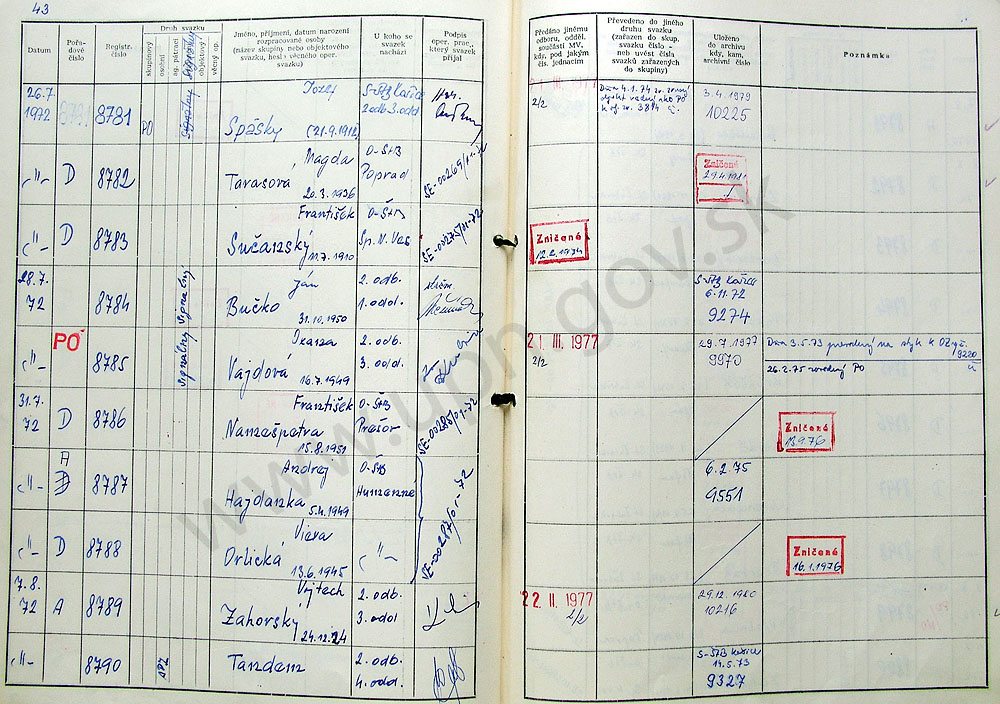 43
Datum
Pořa-
dové
číslo
Registr.
číslo
Druh svazku
skupinový
osobní
ag. pátrací
objektový
věcný op.
Jméno, příjmení, datum narození
rozpracované osoby
(název skupiny nebo objektového
svazku, hesl věcného oper.
svazku)
U koho se
svazek
nachází
Podpis
oper. prac.,
který svazek
přijal
Předáno jinému
odboru, odděl.
součásti MV,
kdy, pod jakým
čís. jednacím
Převedeno do jiného
druhu svazku
(zařazen do skup.
svazku číslo -
neb uvést čísla
svazků zařazených
do skupiny)
Uloženo
do archivu
kdy, kam,
archivní číslo
Poznámka
26.7.
1972
8781
PO
Signálny
Jozef
Spišsky (21.9.1912)
S-ŠtB Košice
2.odb. 3.odd.
2/2
3.4.1979
10225
-"- D 8782
Magda
Tarasová
20.3.1936
O-ŠtB
Poprad
SE-00269/01-72
Zničené
-"- D 8783
František
Sučanský
11.7.1910
O-ŠtB
Sp. N. Ves
SE-00275/01-72
Zničené
12.2.1974
28.7.
72
8784
Signálny
Ján
Bučko
31.10.1950
2. odb.
1. odd.
S-ŠtB Košice
6.11.72
9274
PO
-"- 8785
Signálny
Oxana
Vajdová
16.7.1949
2. odb.
3. odd.
21. III. 1977
2/2
29.7.1977
9970
Dňa 3.5.73
9220
26.2.75 PO
31.7.
72
D 8786
František
Namešpetra
15.8.1951
O-ŠtB
Prešov
SE-00285/01-72
Zničené
1.3.976
A
-"- D 8787
Andrej
Hajdanka
5.4.1949
O-ŠtB
Humenné
SE-00287/01-72
6.2.75
9551
-"- D 8788
Viera
Orlická
13.6.1945
-"-
Zničené
16.1.1976
7.8.
72
A 8789
Vojtech
Záhorský
24.12.24
2. odb.
3. odd
22. II. 1977
2/2
29.12.1980
10216
-"- 8790
Tandem
2. odb.
4. odd.
S-ŠtB Košice
14.5.73
9327
www.upn.gov.sk